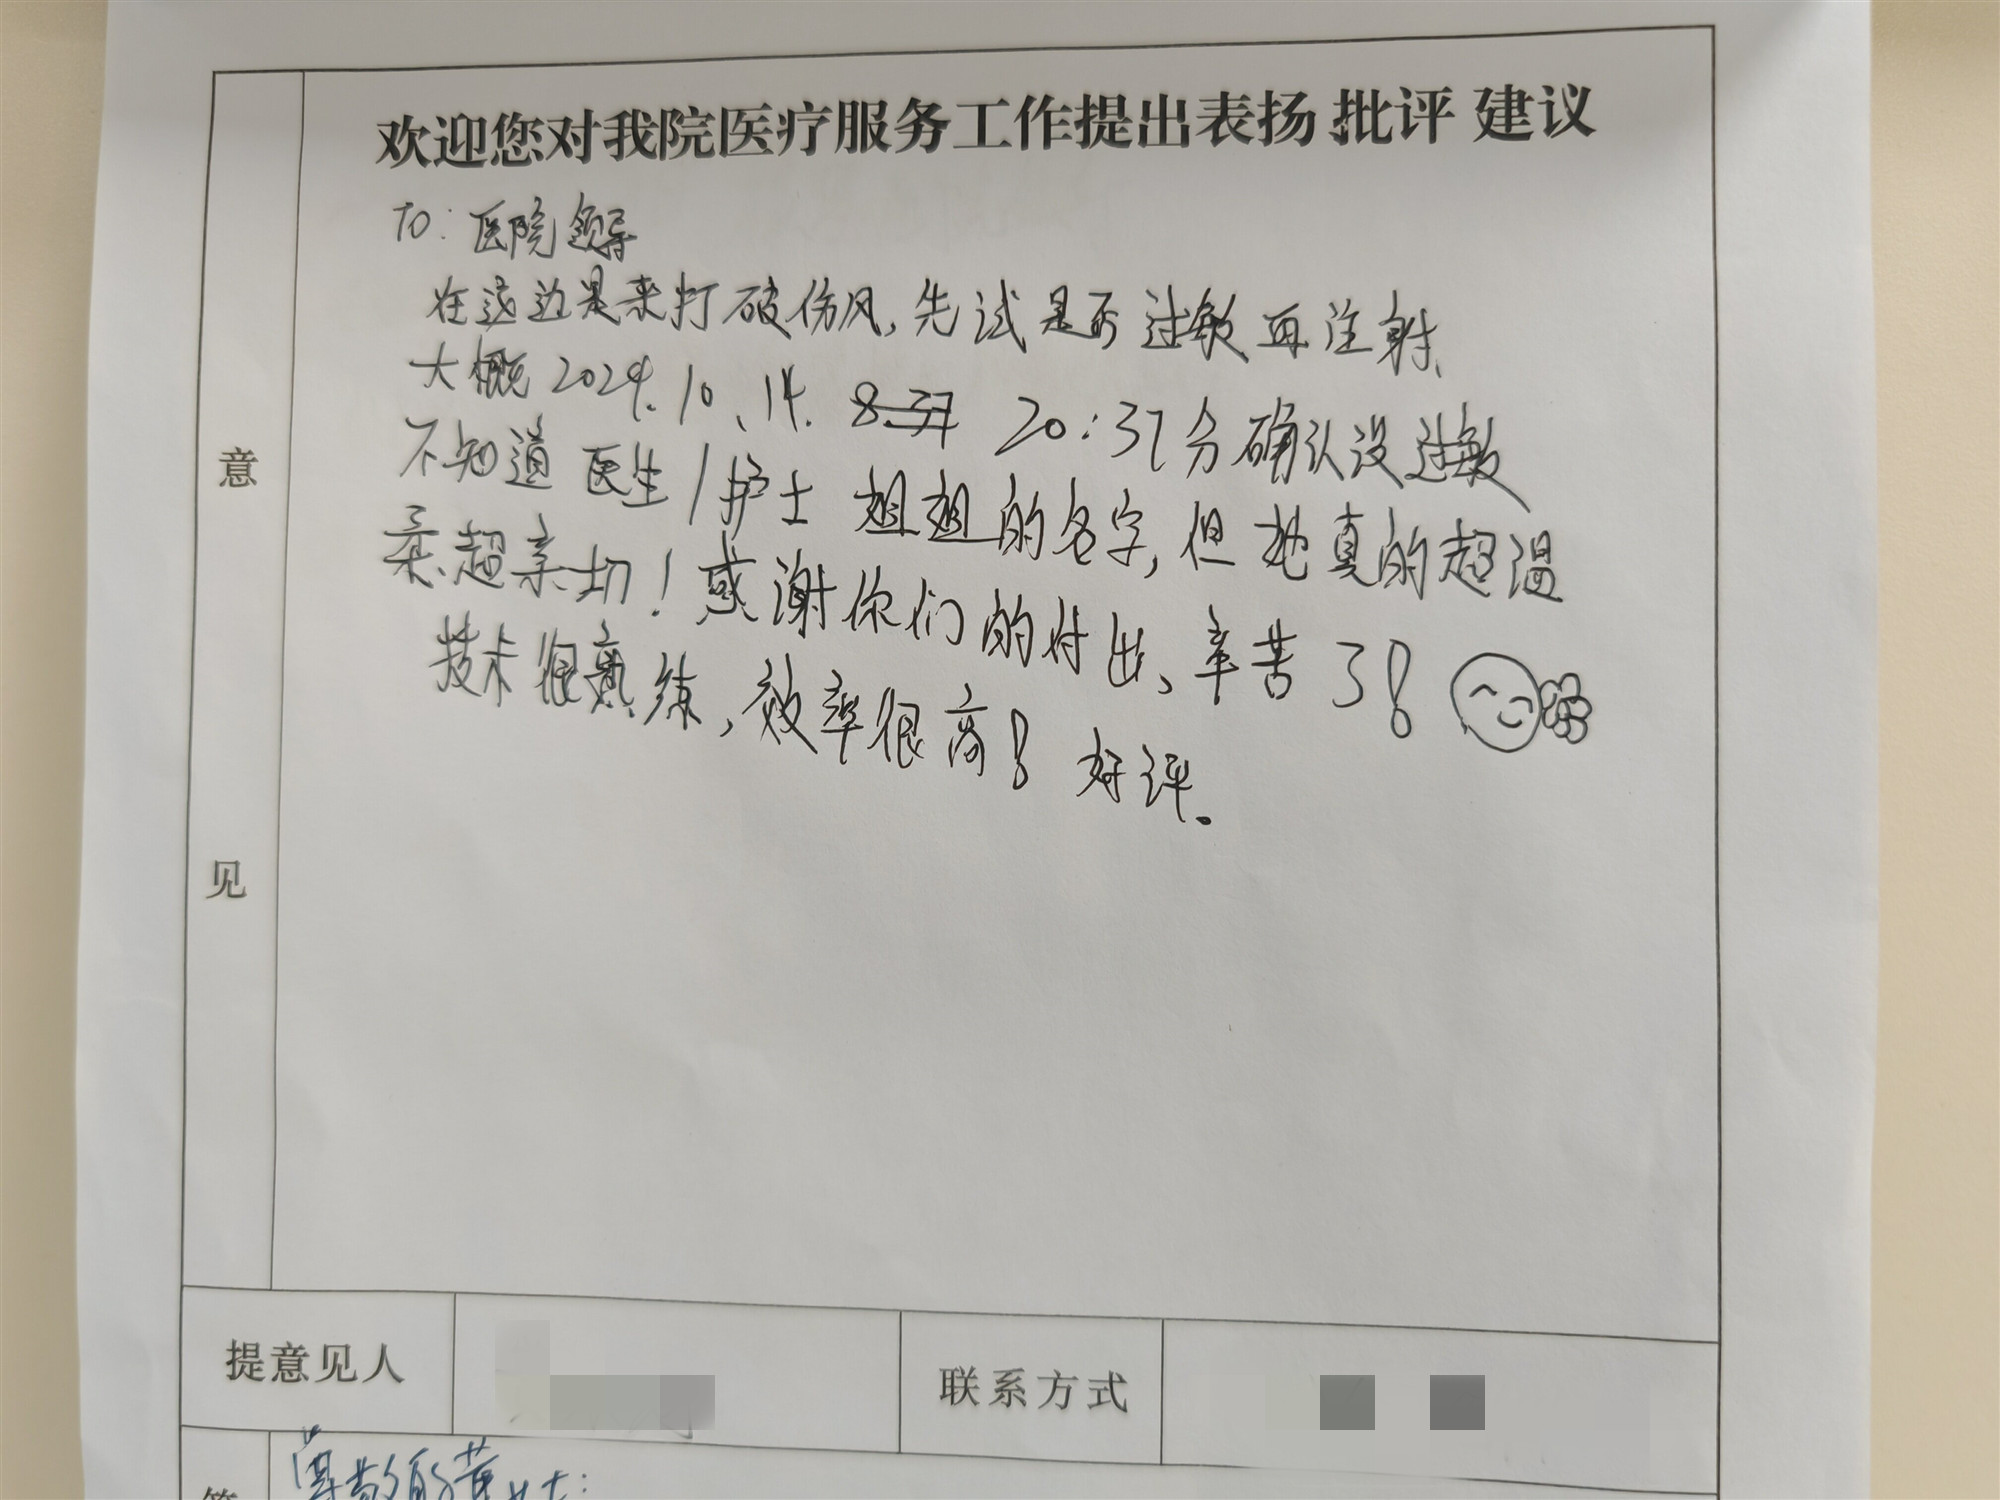 欢迎您对我院医疗服务工作提出表扬 批评 建议
TO: 医院领导
在这边是来打破伤风,先试是否过敏再注射、
大概2024.10、14. 8:37 20:37分确认没过敏
不知道医生/护士姐姐的名字,但她真的超温
柔、超亲切!感谢你们的付出、辛苦了!
技术很熟练,效率很高!好评。
意
见
提意见人
联系方式
尊敬的黄女士: